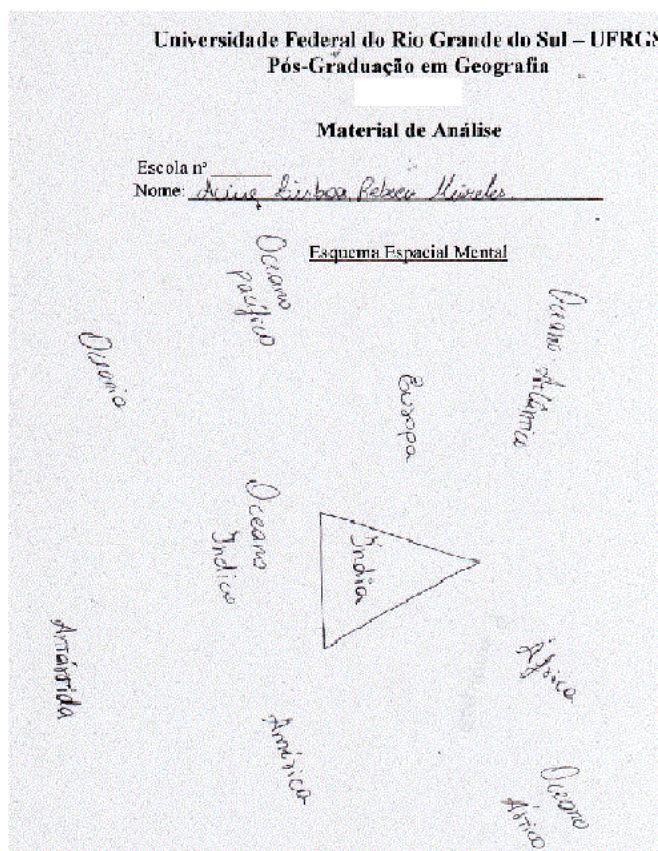 Universidade Federal do Rio Grande do Sul – UFRGS
Pós-Graduação em Geografia
Material de Análise
Escola nº
Nome: Lisboa, Rebeca Meireles
Esquema Espacial Mental
Oceano
pacífico
Oceano Atlântico
Oceania
Europa
Oceano
Índico
Índia
Antártida
África
América
Oceano
Ártico